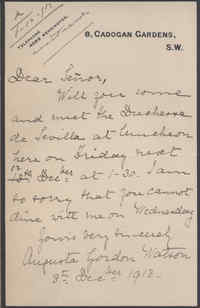 TELEPHONE
8, CADOGAN GARDENS,
S.W.
Dear Señor,
Will you come
and meet the Duchesse
de Sevilla at luncheon
here on Friday next
Dec.ber at 1-30. I am
so sorry that you cannot
dine with me on Wednesday
Yours very sincerely
Augusta Gordon Watson
8th Dec.ber 1912.